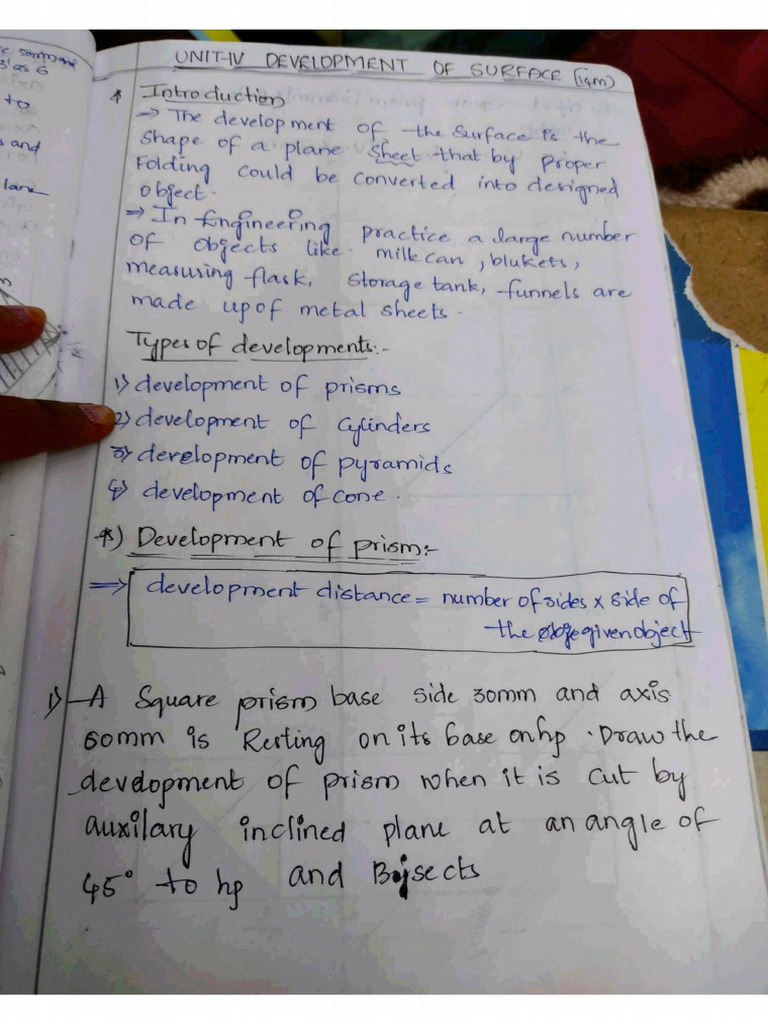 e 50mm and
3' as G
to
s and
lane
UNIT-IV DEVELOPMENT OF SURFACE (14m)
* Introduction
→ The development of the surface is the
shape of a plane sheet that by proper
Folding could be converted into designed
object.
⇒ In Engineering practice a large number
of objects like milk can, blukets,
measuring flask, storage tank, funnels are
made up of metal sheets.
Types of developments:-
1) development of prisms
2) development of cylinders
3) development of pyramids
4) development of cone.
*) Development of prism:-
⇒ development distance = number of sides x side of
the given object
1) A Square prism base side 30mm and axis
60mm is Resting on its base on hp. Draw the
development of prism when it is cut by
auxilary inclined plane at an angle of
45° to hp and Bisects